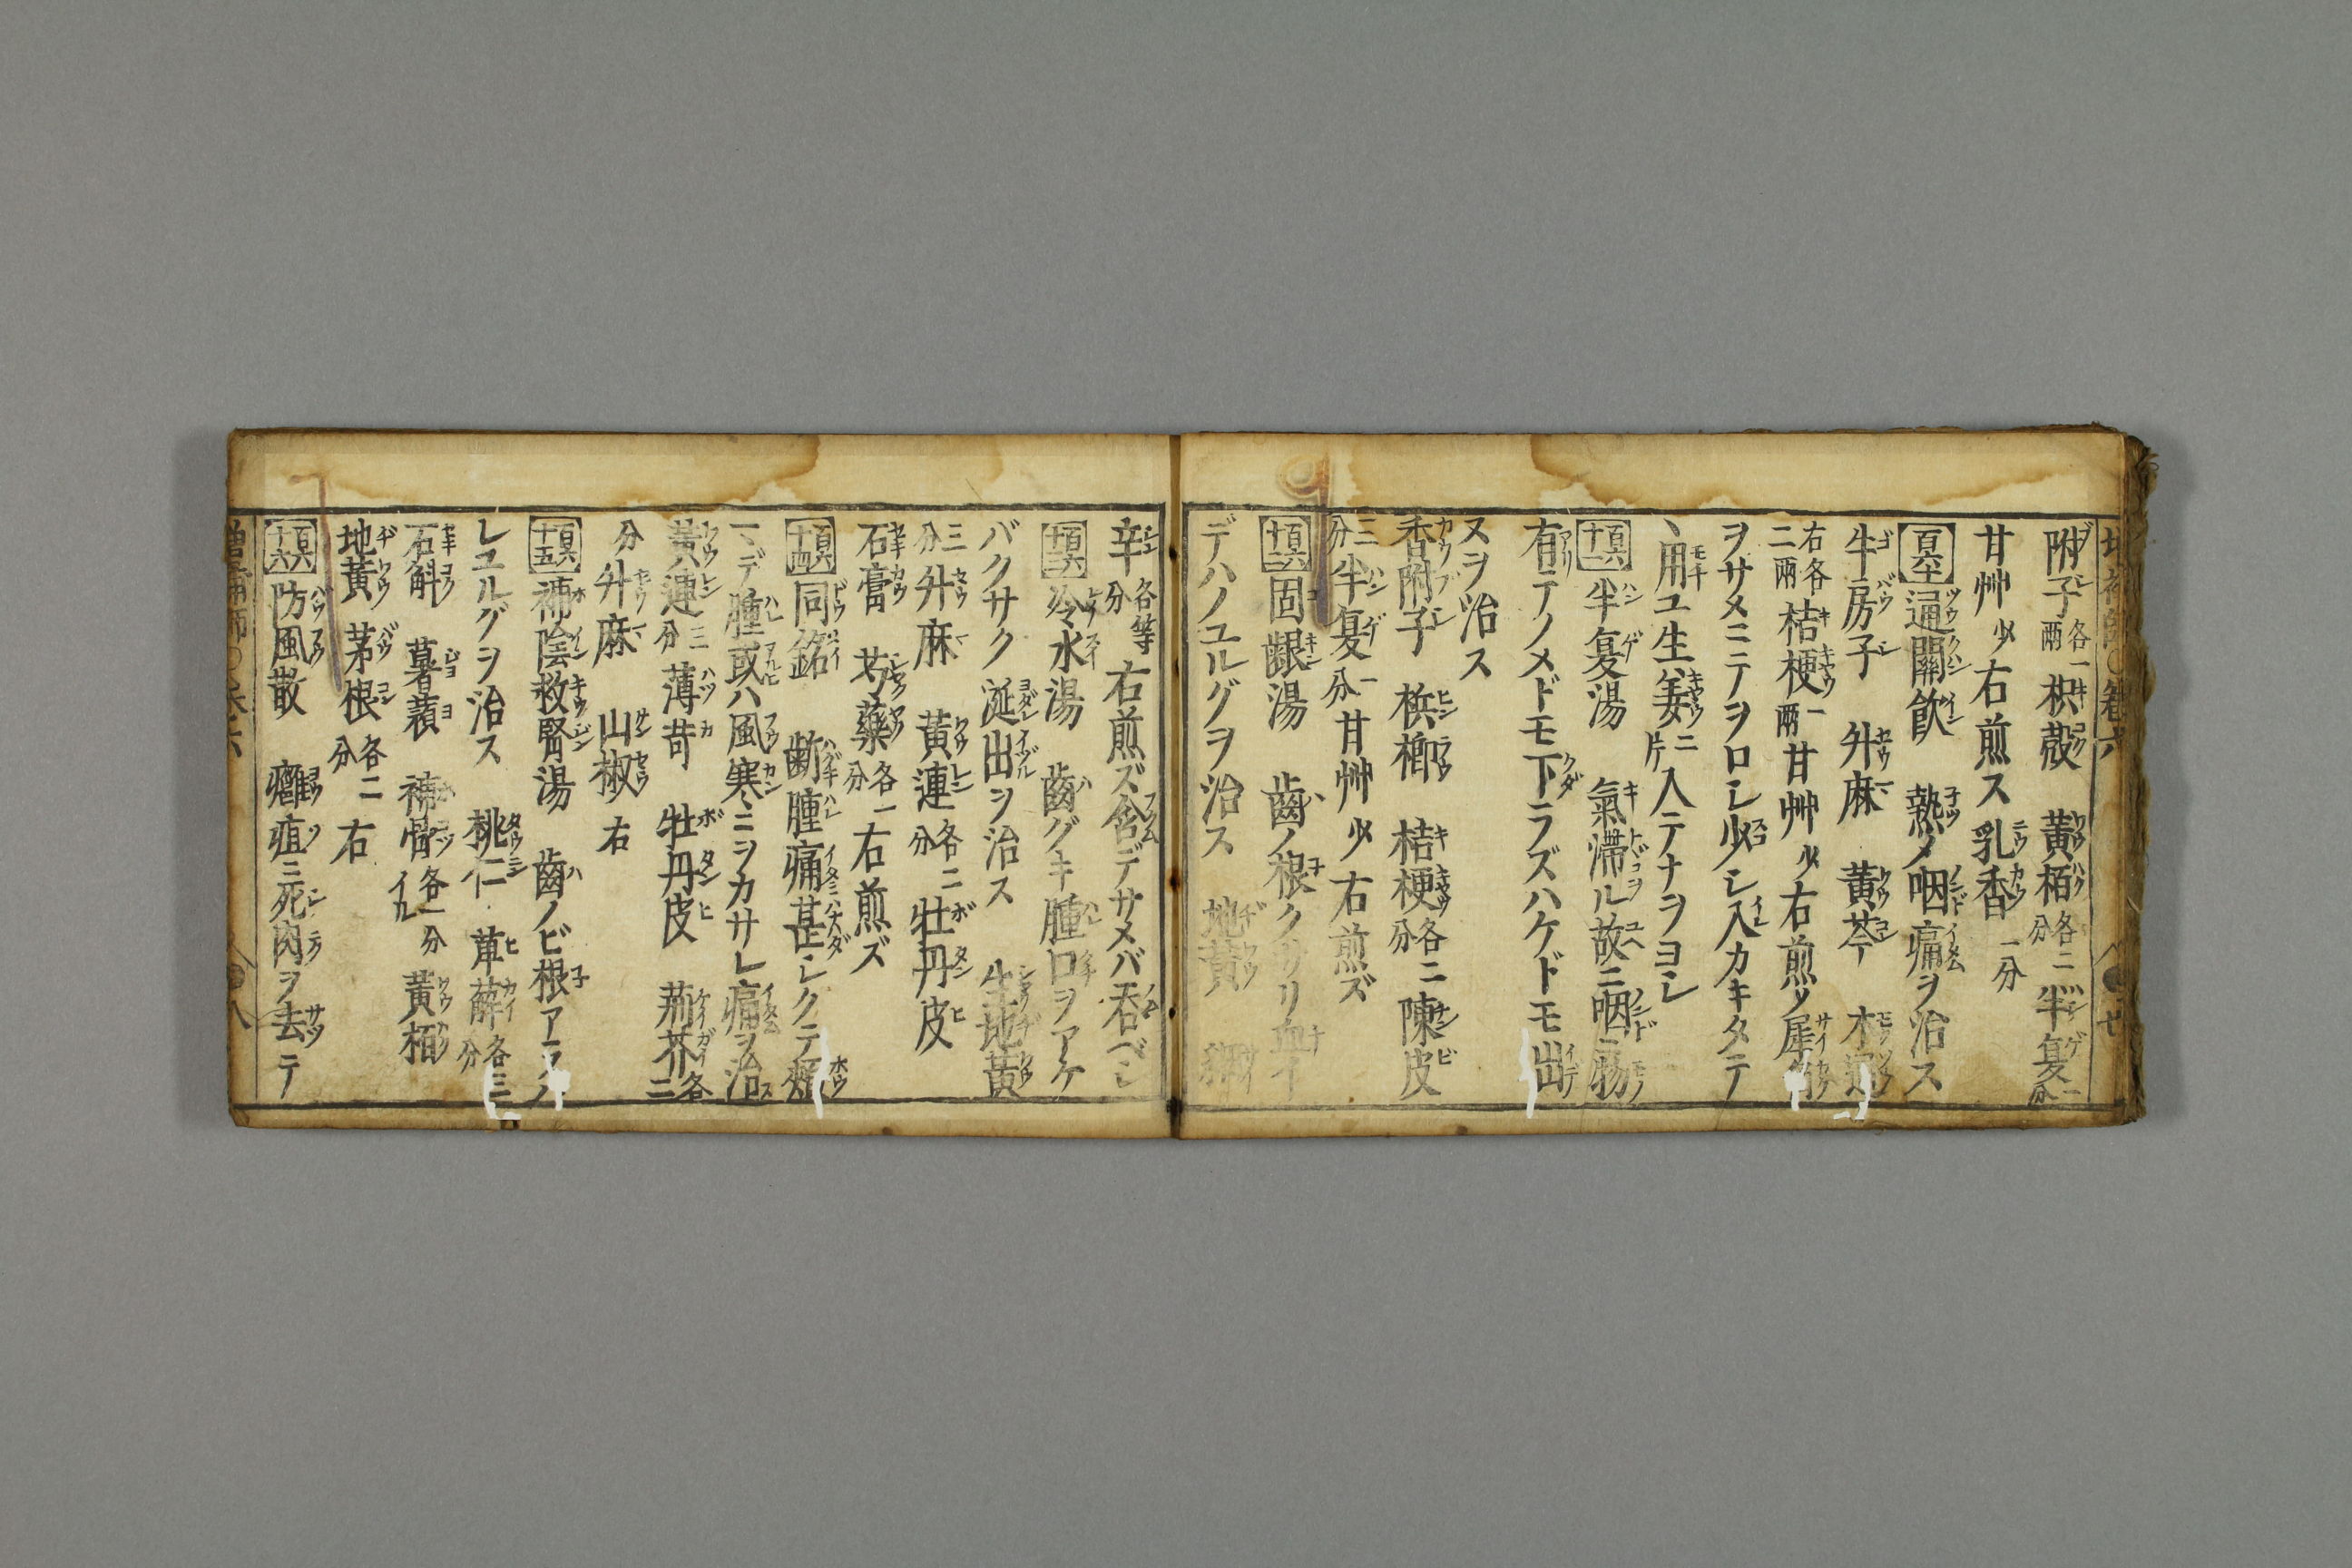 附子各一兩枳殻 黄栢各二分半夏一分
甘艸少右煎ス乳香一分
百六十通關飲 熱ノ咽痛ヲ治ス
牛房子 升麻 黄芩 木通
右各二兩桔梗一兩甘艸少右煎メ犀角
ヲサメニテヲロシ少シ入カキタテ
丶用ユ生姜二片入テナヲヨシ
百六十一半夏湯 氣滯ル故ニ咽ニ物
有テノメドモ下ラズハケドモ出
ヌヲ治ス
香附子 檳榔 桔梗各二分陳皮
三分半夏一分甘艸少右煎ズ
固齦湯 齒ノ根クサリ血イ
デハノユルグヲ治ス 地黄 細
辛各等分右煎ズ含デサメバ呑ベシ
冷水湯 齒グキ腫口ヲアケ
バクサク涎出ヲ治ス 生地黄
三分升麻 黄連各二分牡丹皮
石膏 芍藥各一分右煎ズ
百六十四同銘 齗腫痛甚シクテ頰
マデ腫或ハ風寒ニヲカサレ痛ヲ治ス
黄連三分薄苛 牡丹皮 荊芥各二
分升麻 山椒右
百六十五補陰救腎湯 齒ノビ根アラハ
レユルグヲ治ス 桃仁 萆薢各三分
石斛 薯蕷 補骨各一分イル黄栢
地黄 茅根各二分右
百六十六防風散 癰疽ニ死肉ヲ去テ
八